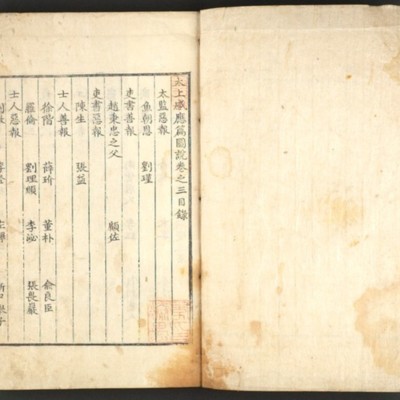 太上感應篇圖說卷之三目錄
太監惡報
魚朝恩 劉瑾
吏書善報
趙秉忠之父 顧佐
吏書惡報
陳生 張益
士人善報
徐階 薛瑄 董朴 俞良臣
羅倫 劉理順 李泌 張畏巖
士人惡報